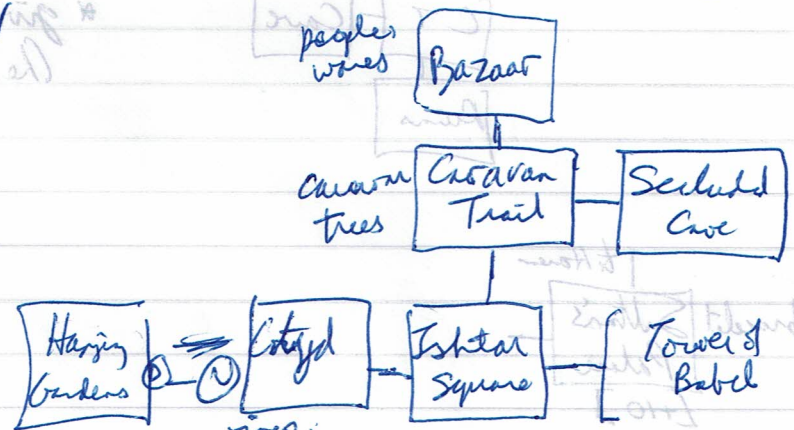 peoples
wares
Bazaar
caravan
trees
Caravan
Trail
Secluded
Cave
Hanging
Gardens
D
N
Ishtar
Square
Tower of
Babel